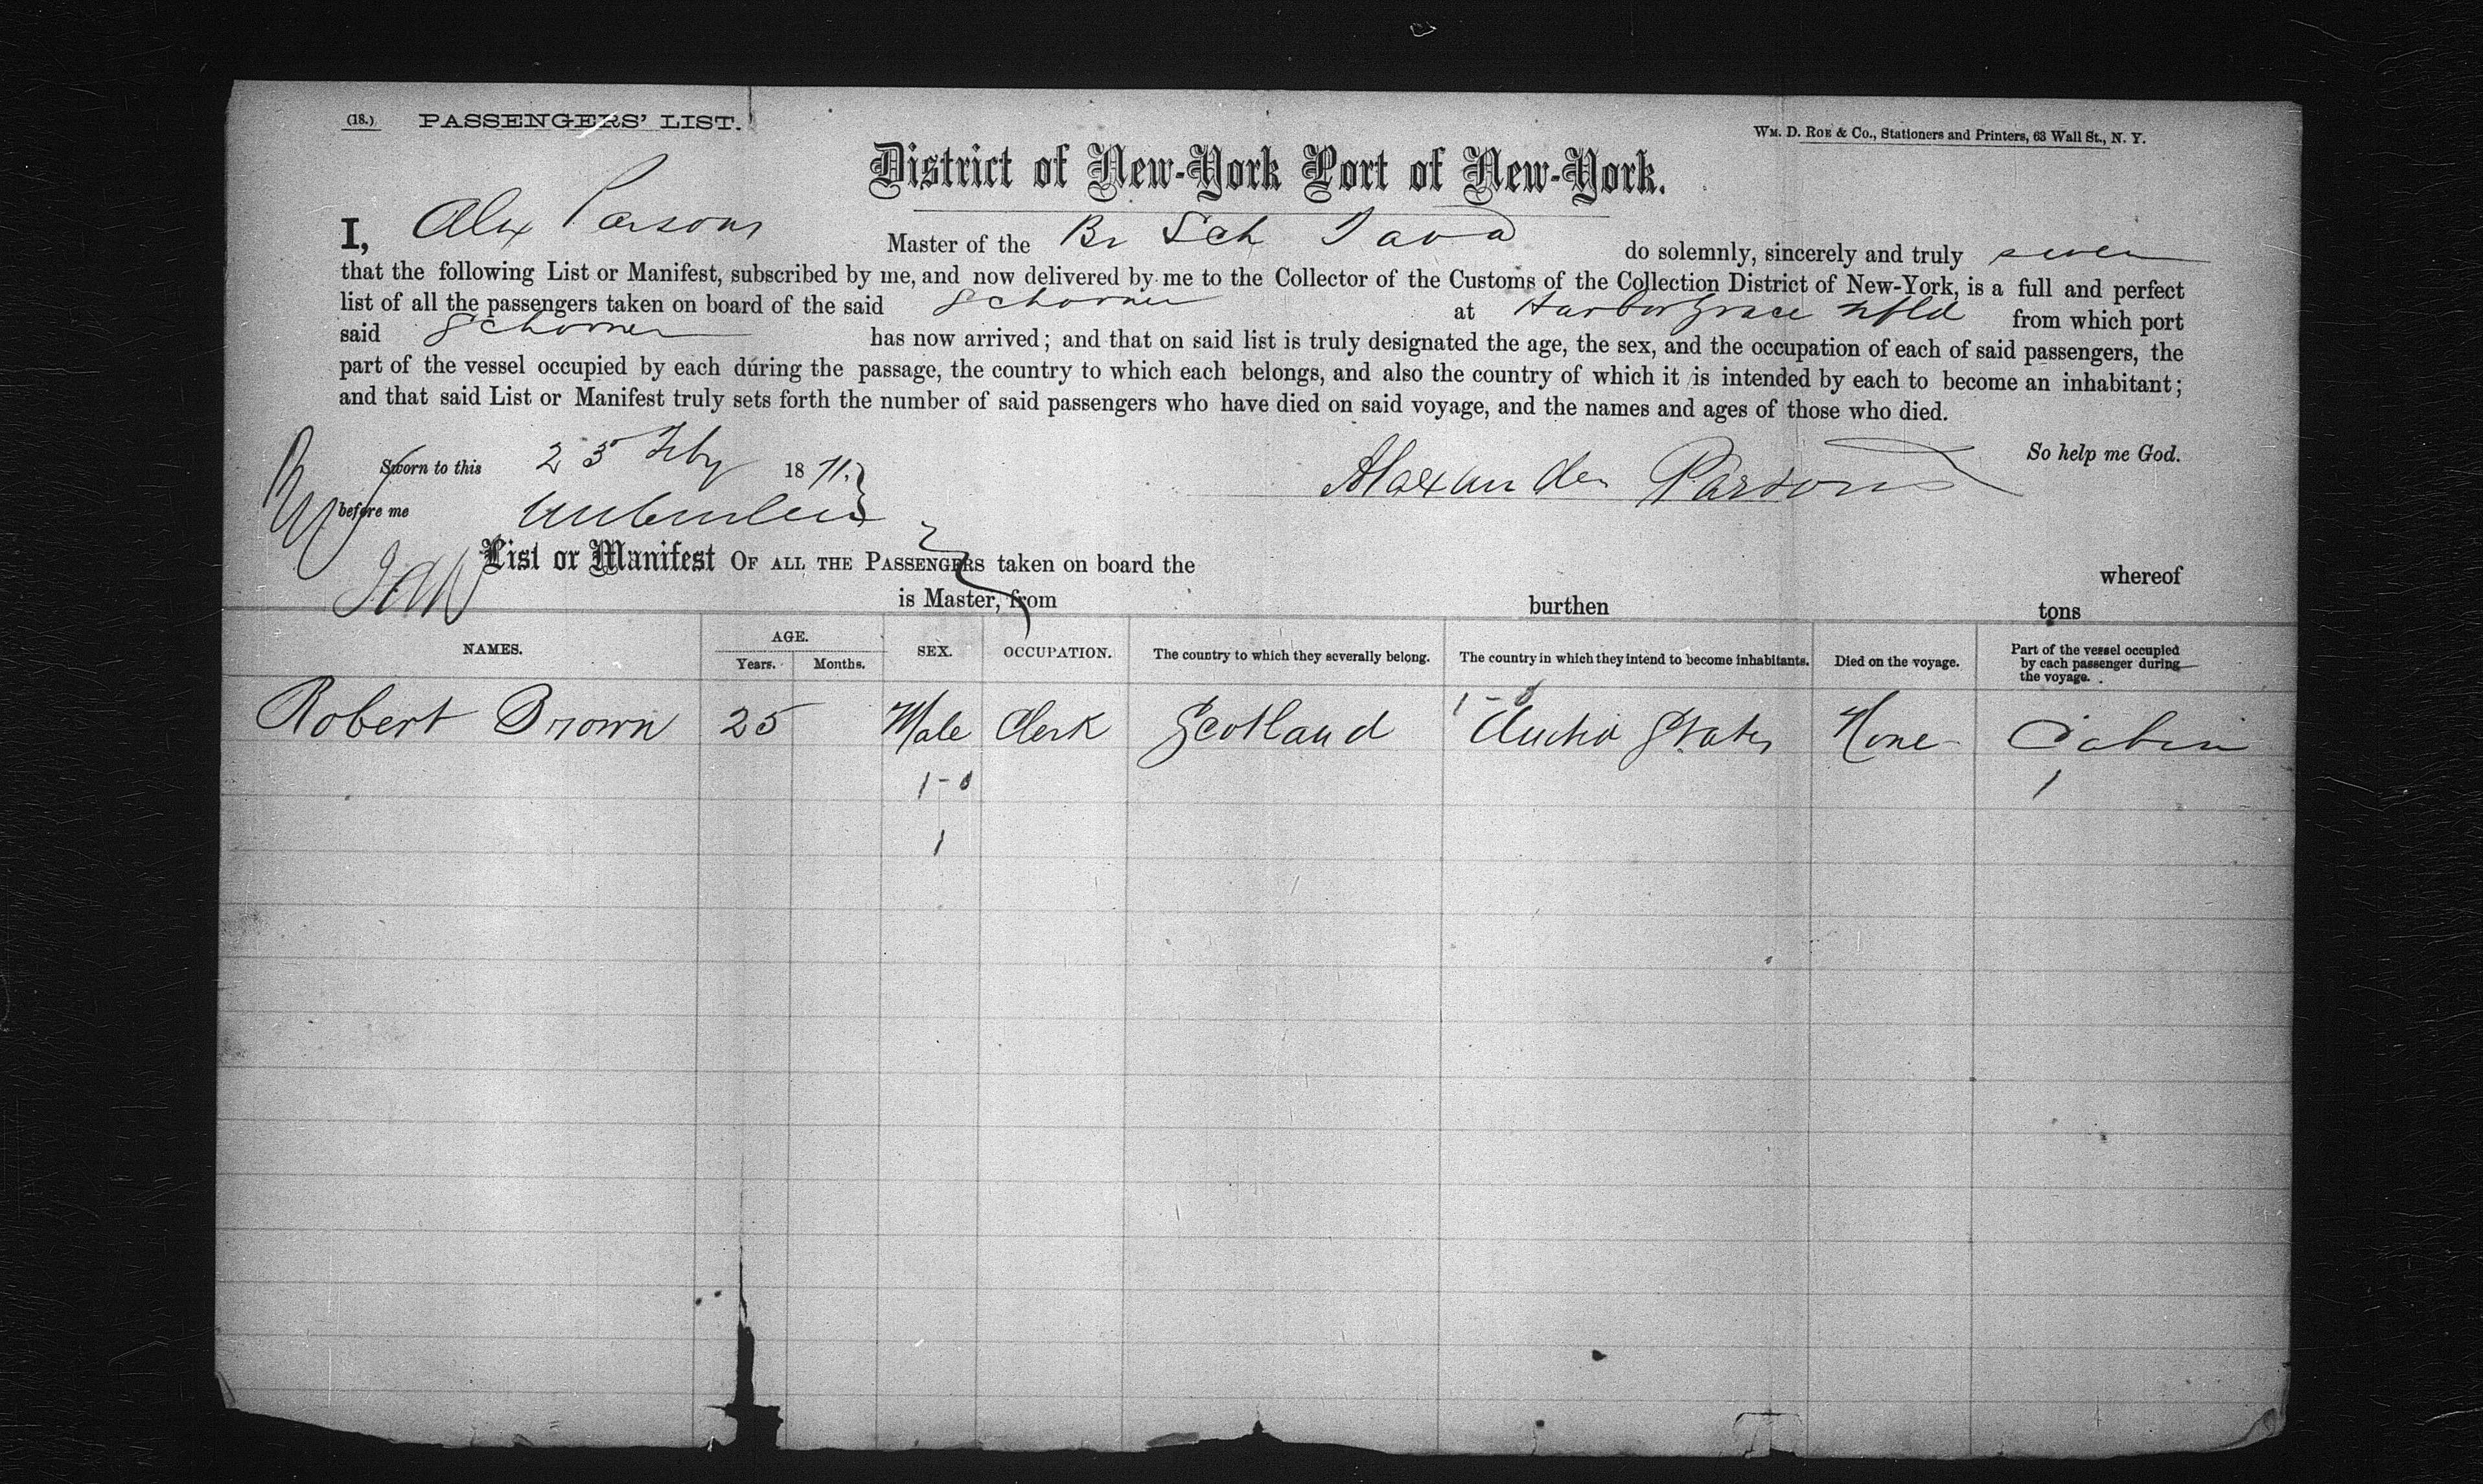 (18.) PASSENGERS' LIST.
WM. D. ROE & Co., Stationers and Printers, 63 Wall St., N. Y.
District of New-York Port of New-York.
I, Alex Parsons Master of the Br Sch Java do solemnly, sincerely and truly swear
that the following List or Manifest, subscribed by me, and now delivered by me to the Collector of the Customs of the Collection District of New-York, is a full and perfect
list of all the passengers taken on board of the said Schooner at Harbor Grace Nfld from which port
said Schooner has now arrived; and that on said list is truly designated the age, the sex, and the occupation of each of said passengers, the
part of the vessel occupied by each during the passage, the country to which each belongs, and also the country of which it is intended by each to become an inhabitant;
and that said List or Manifest truly sets forth the number of said passengers who have died on said voyage, and the names and ages of those who died.
So help me God.
Sworn to this 25 Feby 1871.
Alexander Parsons
before me
List or Manifest OF ALL THE PASSENGERS taken on board the whereof
is Master, from burthen tons
NAMES. AGE. Years. Months. SEX. OCCUPATION. The country to which they severally belong. The country in which they intend to become inhabitants. Died on the voyage. Part of the vessel occupied by each passenger during the voyage.
1-0
Robert Brown 25 Male Clerk Scotland United States None Cabin
1-0 1
1